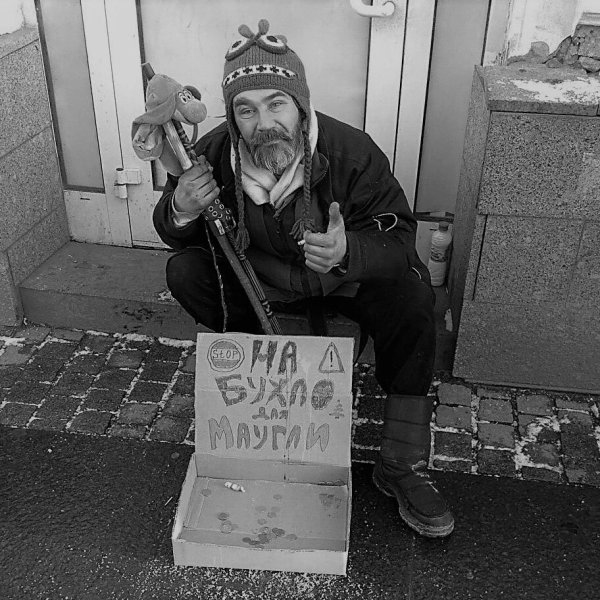 STOP НА
БУХЛО
ДЛЯ
МАУГЛИ